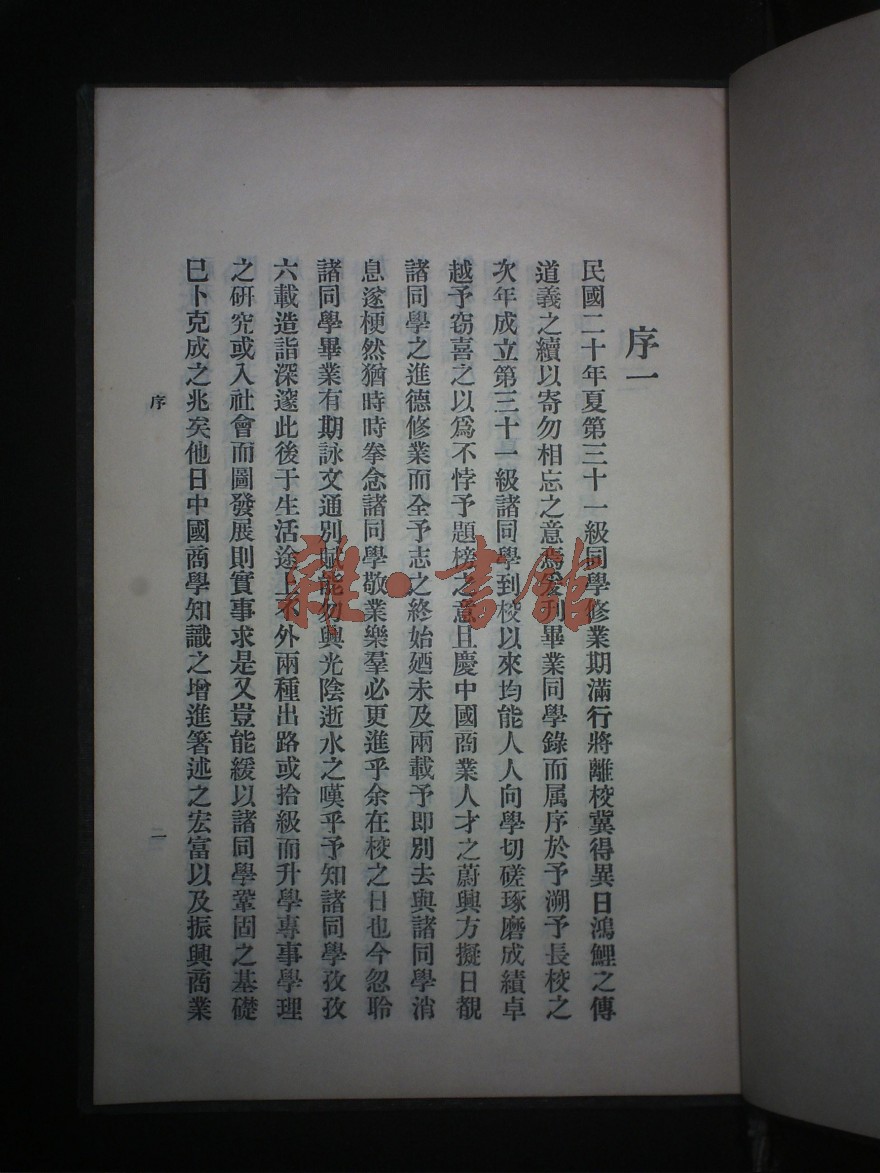 序一
民國二十年夏第三十一級同學修業期滿行將離校冀得異日鴻鯉之傳
道義之續以寄勿相忘之意焉爰刊畢業同學錄而属序於予溯予長校之
次年成立第三十一級諸同學到校以來均能人人向學切磋琢磨成績卓
越予窃喜之以爲不悖予題榜之意且慶中國商業人才之蔚興方擬日覩
諸同學之進德修業而全予志之終始廼未及兩載予即別去與諸同學消
息遂梗然猶時時拳念諸同學敬業樂羣必更進乎余在校之日也今忽聆
諸同學畢業有期詠文通別賦能勿興光陰逝水之嘆乎予知諸同學孜孜
六載造詣深邃此後于生活途上不外兩種出路或拾級而升學專事學理
之研究或入社會而圖發展則實事求是又豈能緩以諸同學鞏固之基礎
已卜克成之兆矣他日中國商學知識之增進箸述之宏富以及振興商業
序
二
雜·書館